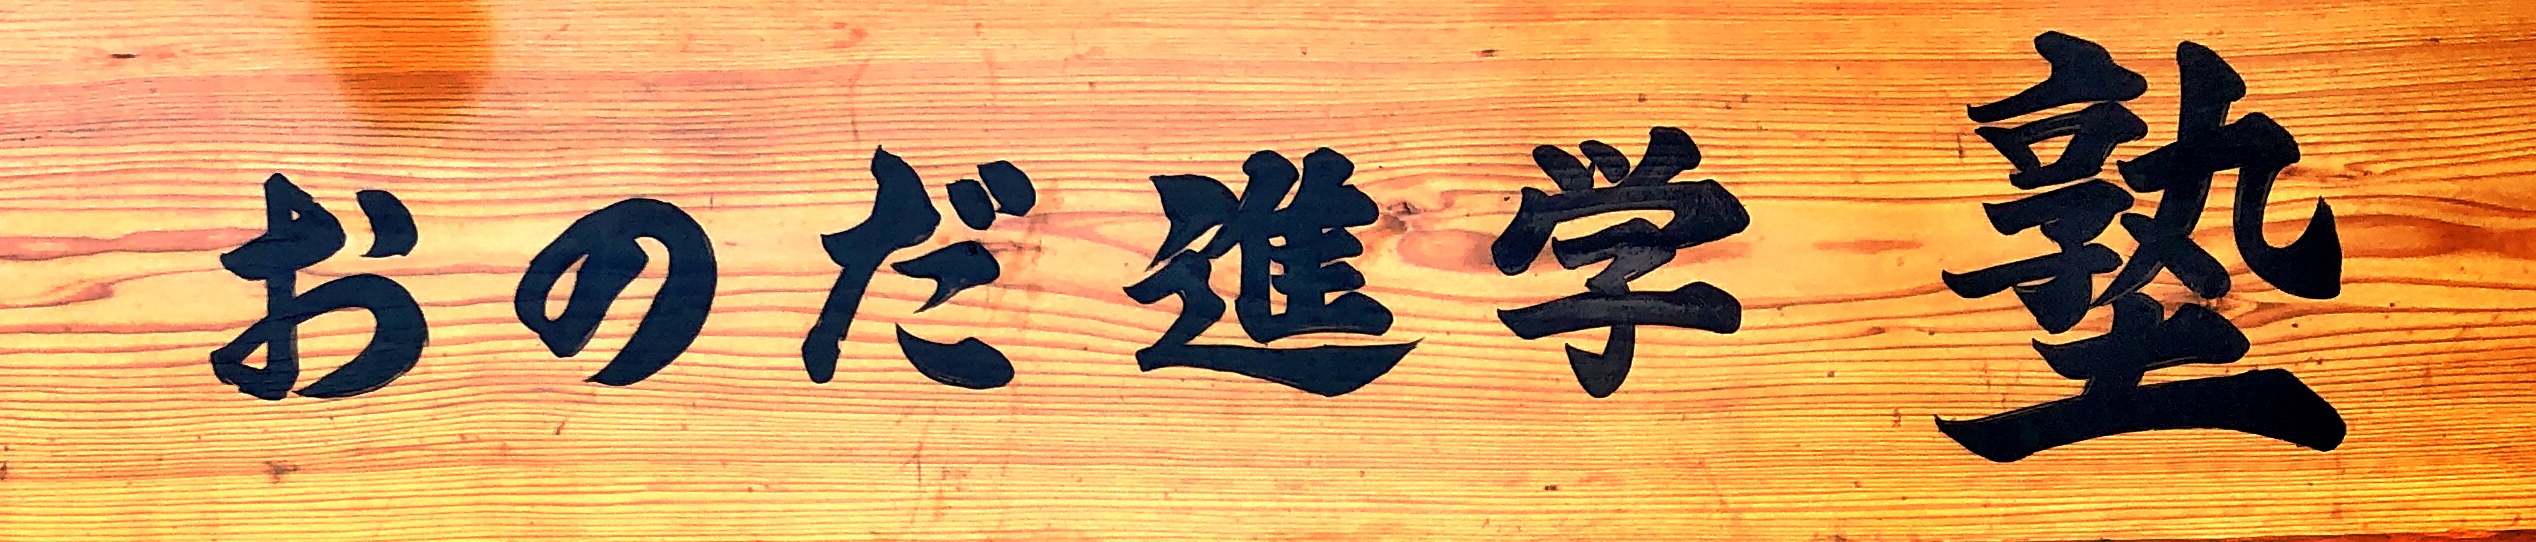 おのだ進学塾